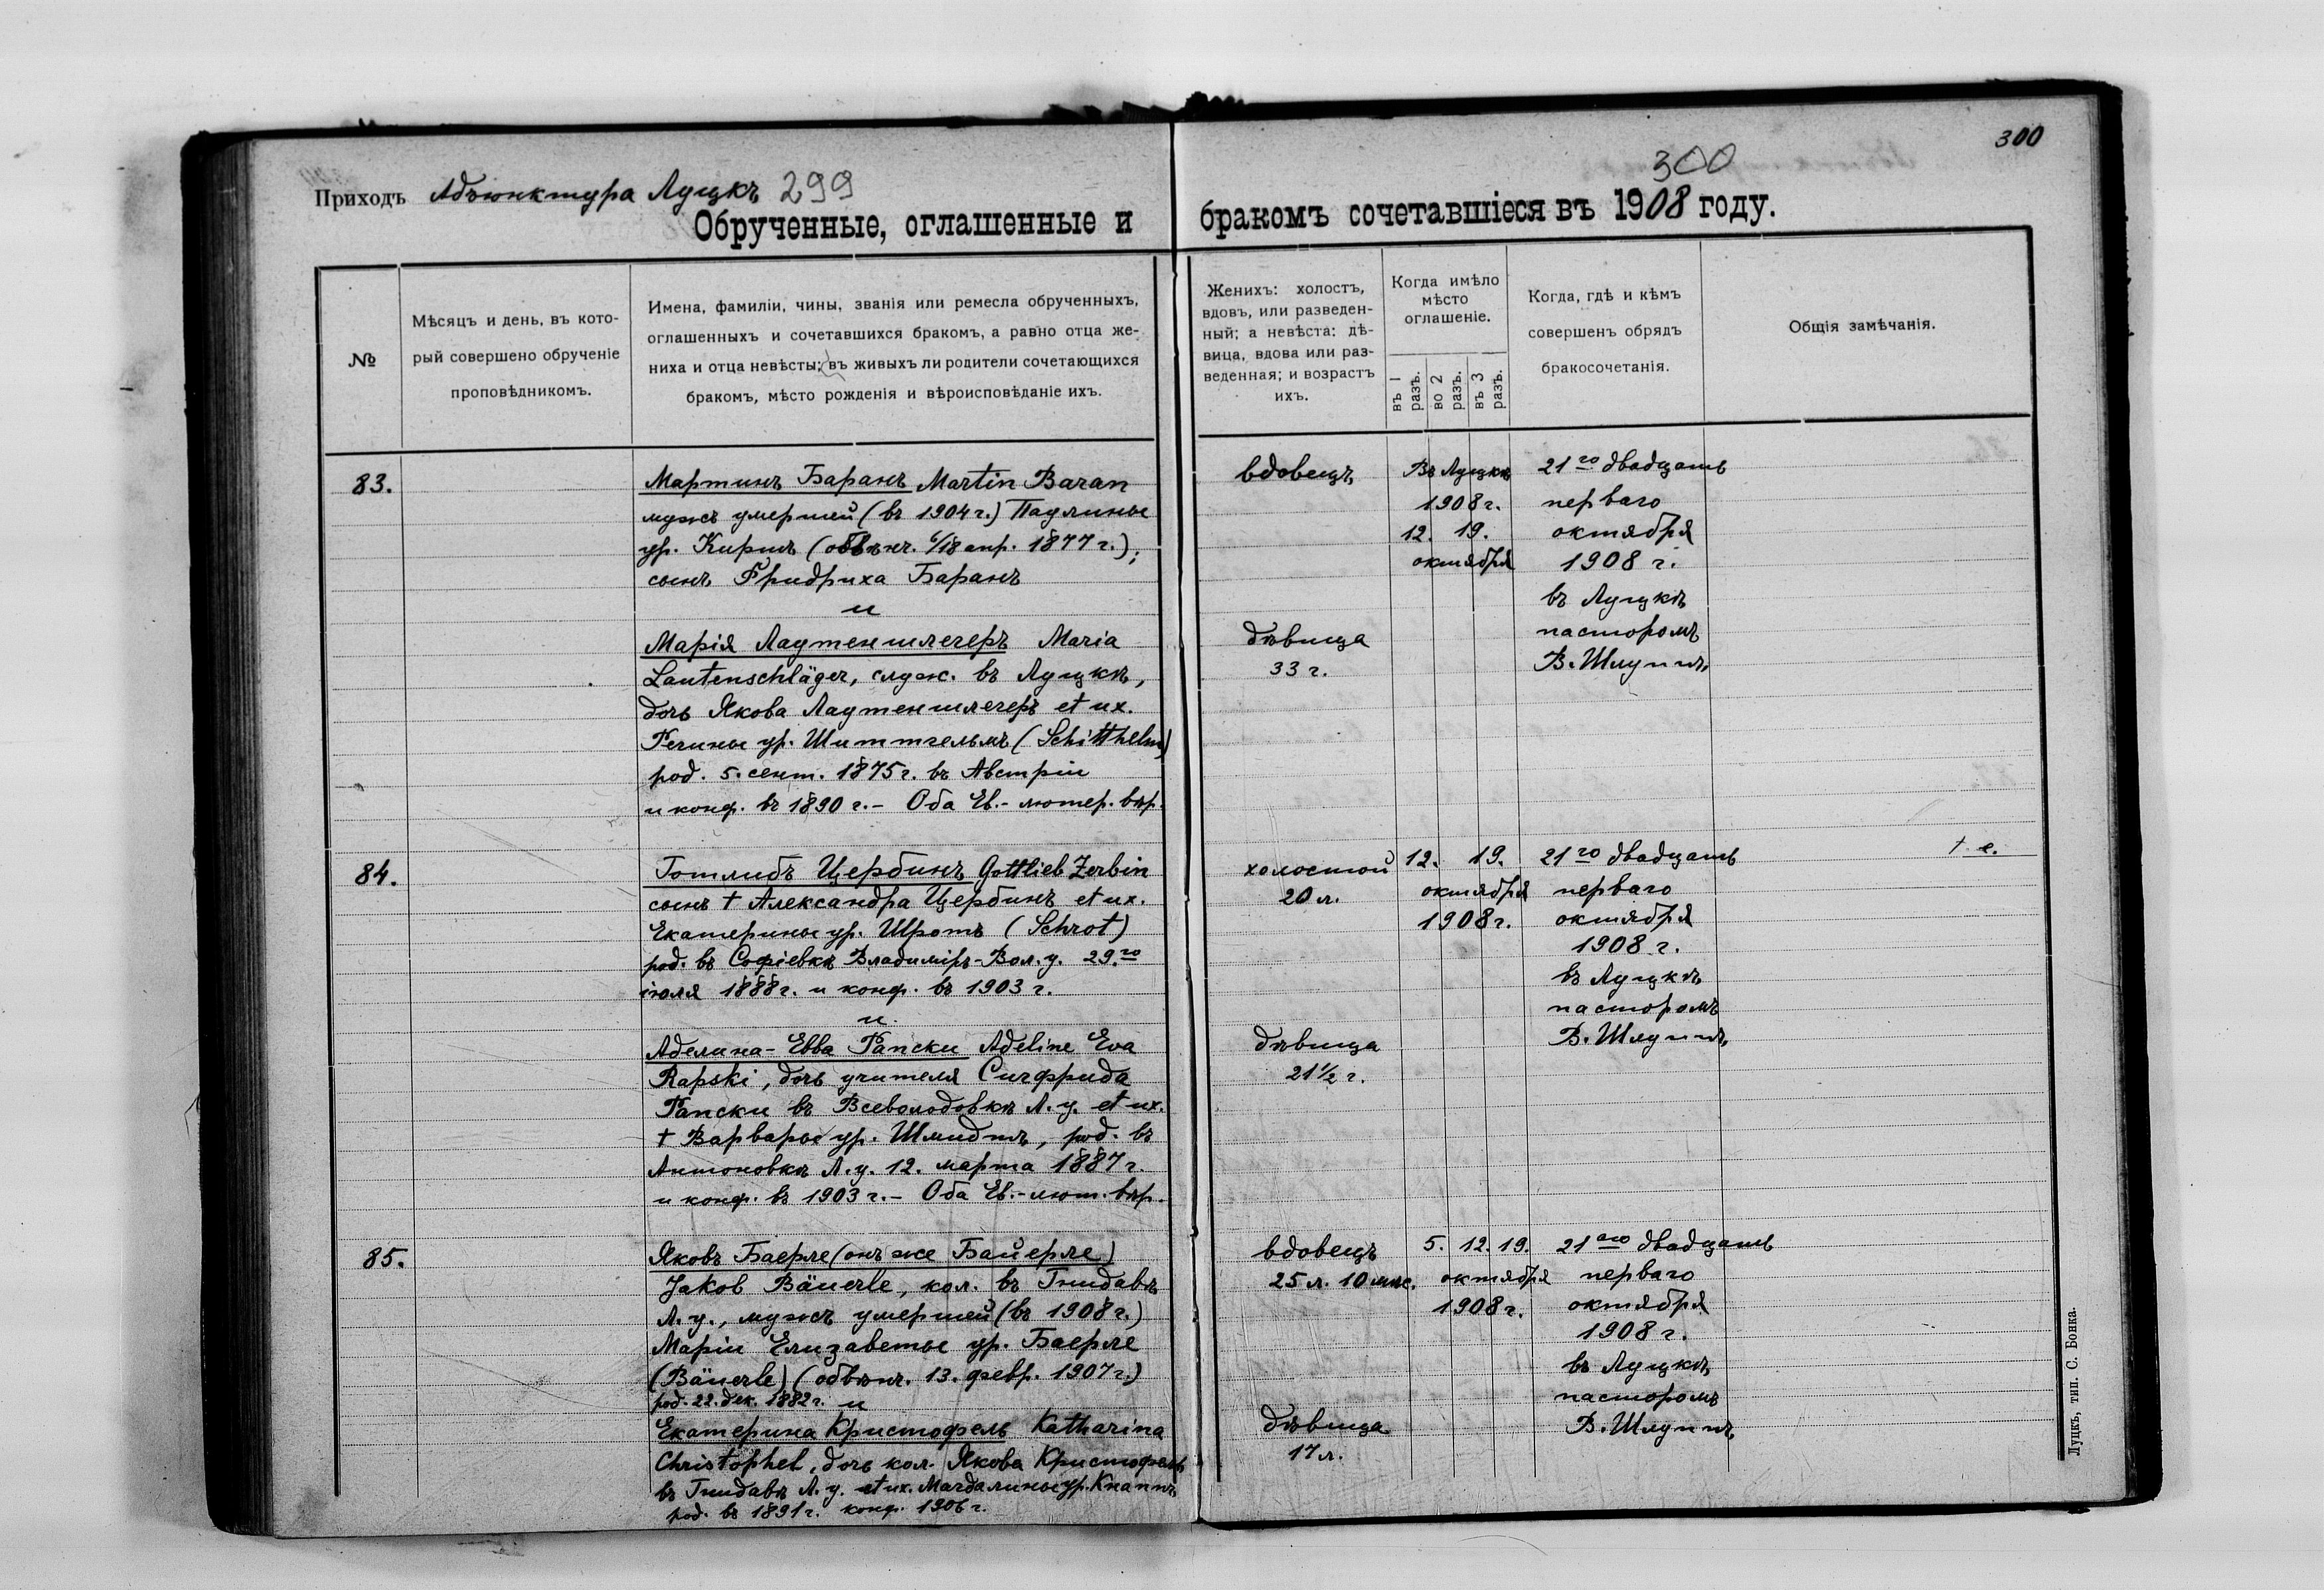 300
Приходъ Адъюнктура Луцкъ 299
300
Обрученные, оглашенные и бракомъ сочетавшіеся въ 1908 году.
№
Мѣсяцъ и день, въ кото-
рый совершено обрученіе
проповѣдникомъ.
Имена, фамиліи, чины, званія или ремесла обрученныхъ,
оглашенныхъ и сочетавшихся бракомъ, а равно отца же-
ниха и отца невѣсты; въ живыхъ ли родители сочетающихся
бракомъ, мѣсто рожденія и вѣроисповѣданіе ихъ.
Женихъ: холостъ,
вдовъ, или разведен-
ный; а невѣста: дѣ-
вица, вдова или раз-
веденная; и возрастъ
ихъ.
Когда имѣло
мѣсто
оглашеніе.
въ 1 разъ.
во 2 разъ.
въ 3 разъ.
Когда, гдѣ и кѣмъ
совершенъ обрядъ
бракосочетанія.
Общія замѣчанія.
83.
Мартинъ Баранъ Martin Baran
мужъ умершей (въ 1904 г.) Паулины
ур. Киршъ (обвѣнч. 6/18 апр. 1877 г.);
сынъ Фридриха Баранъ
и
Марія Лаутеншлегеръ Maria
Lautenschläger, служ. въ Луцкѣ,
дочь Якова Лаутеншлегеръ et ux.
Регины ур. Шиттгельмъ (Schitthelm)
род. 5. сент. 1875 г. въ Австріи
и конф. въ 1890 г. - Оба Ев.- лютер. вѣр.
вдовецъ
дѣвица
33 г.
Въ Луцкѣ
1908 г.
12. 19.
октября
21го двадцать
перваго
октября
1908 г.
въ Луцкѣ
пасторомъ
В. Шлуппъ
84.
Готлибъ Цербинъ Gottlieb Zerbin
сынъ † Александра Цербинъ et ux.
Екатерины ур. Шротъ (Schrot)
род. въ Софіевкѣ Владимір-Вол. у. 29.го
іюля 1888 г. и конф. въ 1903 г.
и
Аделина- Евва Рапски Adeline Eva
Rapski, дочь учителя Сигфрида
Рапски въ Всеволодовкѣ Л. у. et ux.
† Варвары ур. Шмидтъ, род. въ
Антоновкѣ Л. у. 12. марта 1887 г.
и конф. въ 1903 г. - Оба Ев.-лют. вѣр.
холостой
20 л.
дѣвица
21 1/2 г.
12. 19.
октября
1908 г.
21го двадцать
перваго
октября
1908 г.
въ Луцкѣ
пасторомъ
В. Шлуппъ
85.
Яковъ Баерле (онъ же Байерле)
Jakob Bäuerle, кол. въ Гнидавѣ
Л. у., мужъ умершей (въ 1908 г.)
Маріи Елизаветы ур. Баерле
(Bäuerle) (обвѣнч. 13. февр. 1907 г.)
род. 22. дек. 1882 г. и
Екатерина Кристофель Katharina
Christophel, дочь кол. Якова Кристофель
въ Гнидавѣ Л. у. et ux. Магдалины ур. Кнаппъ
род. въ 1891 г. конф. 1906 г.
вдовецъ
25 л. 10 мѣс.
дѣвица
17 л.
5. 12. 19.
октября
1908 г.
21аго двадцать
перваго
октября
1908 г.
въ Луцкѣ
пасторомъ
В. Шлуппъ
Луцкъ, тип. С. Бонка.